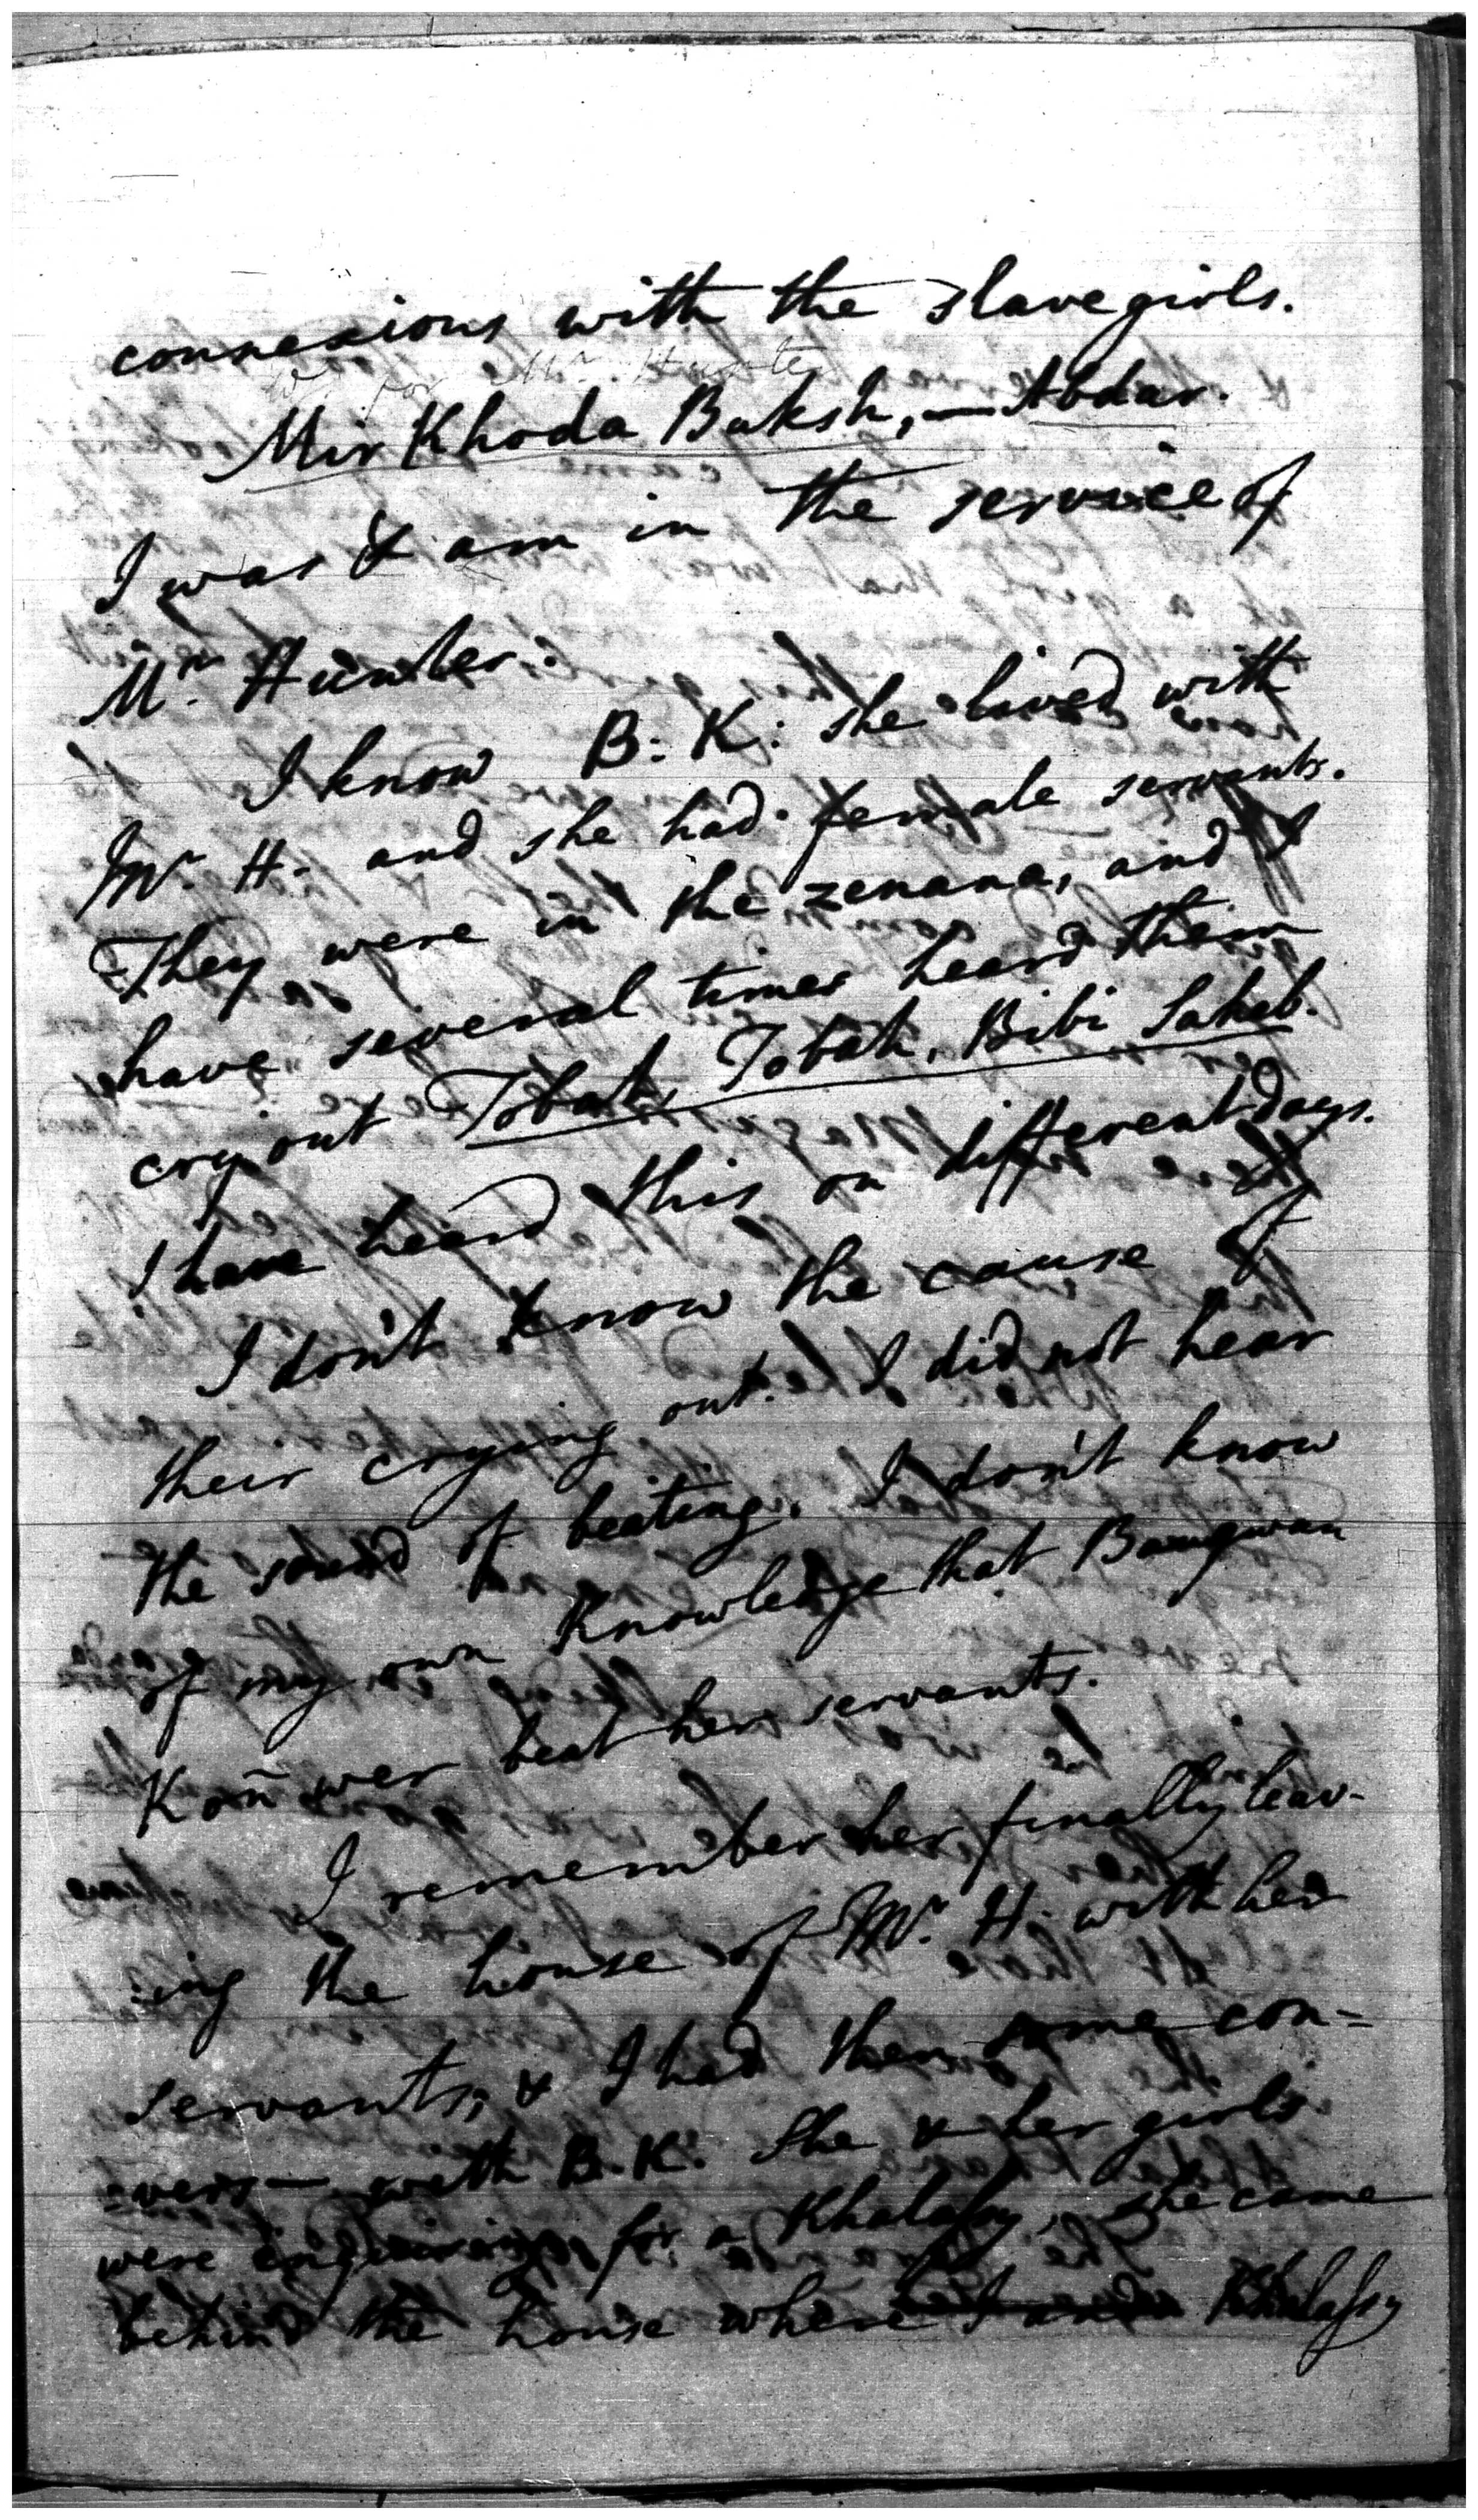 connexions with the slavegirls.
Mr. Hunter
Mir Khoda Buksh, — Abdar.
I was & am in the service of
Mr. Hunter.
I know B. K: she lived with
Mr. H. and she had female servants.
They were in the zenana, and I
have several times heard them
cry out Tobah, Tobah, Bibi Saheb.
I have heard this on different days.
I don't know the cause of
their crying out. I did not hear
the sound of beating. I don't know
of my own Knowledge that Baugwan
Konwer beat her servants.
I remember her finally leav-
:ing the house of Mr. H. with her
servants; & I had then some con=
=vers— with B.K. She & her girls
were enquiring for a Khalassy, she came
behind the house where Khalassy